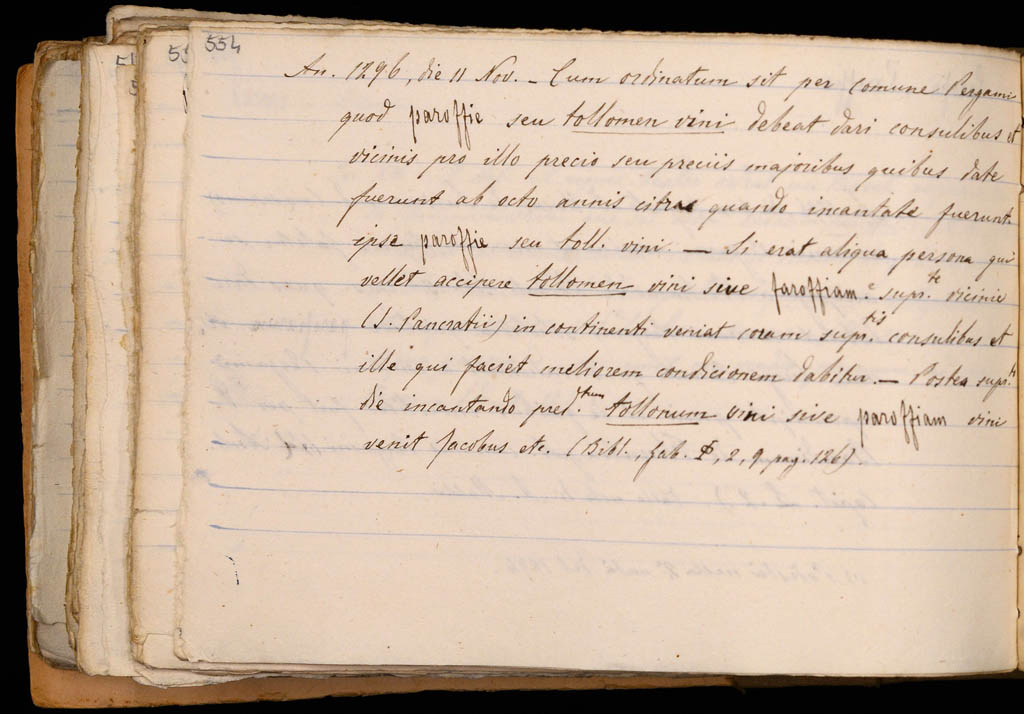 554
An. 1296, die 11 Nov. – Cum ordinatum sit per Comune Pergami
quod paroffie seu tollomen vini debeat dari consulibus et
vicinis pro illo precio seu preciis majoribus quibus date
fuerunt ab octo annis citra quando incantate fuerunt
ipse paroffie seu toll. vini. — Si erat aliqua persona qui
vellet accipere tollomen vini sive faroffiam supr.te vicinie
(S. Pancratii) in continenti veniat coram supr.tis consulibus et
ille qui faciet meliorem condicionem dabitur. — Postea supr.ti
die incantando pred.tum tollonum vini sive paroffiam vini
venit Jacobus etc. (Bibl., Gab. Φ, 2, 9 pag. 126).